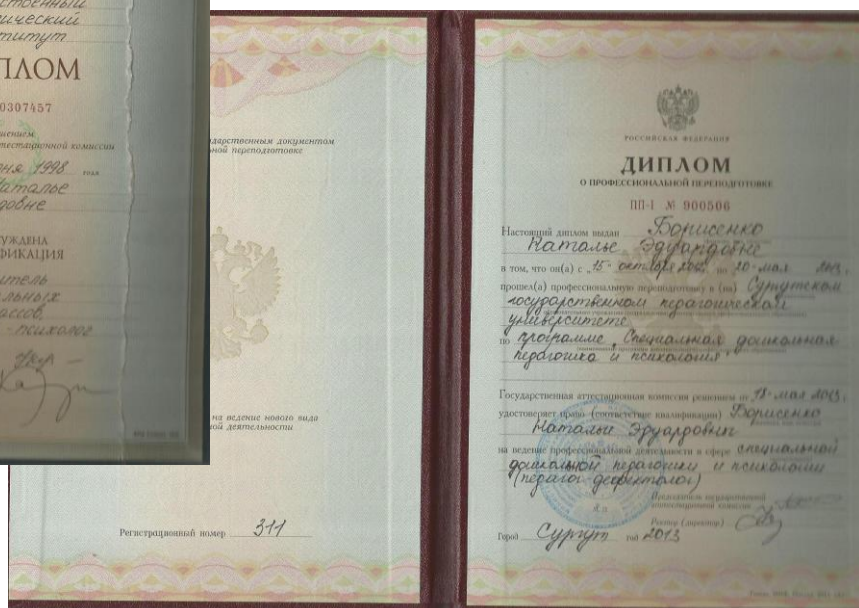 ственный
ический
титут
ПЛОМ
0307457
шением
тестационной комиссии
ня 1998 года
аталье
довне
УЖДЕНА
ФИКАЦИЯ
итель
альных
ассов,
- психолог
дарственным документом
ной переподготовке
на ведение нового вида
ой деятельности
Регистрационный номер 311
РОССИЙСКАЯ ФЕДЕРАЦИЯ
ДИПЛОМ
О ПРОФЕССИОНАЛЬНОЙ ПЕРЕПОДГОТОВКЕ
ПП-I № 900506
Настоящий диплом выдан Борисенко
Наталье Эдуардовне
в том, что он(а) с „15" октября по 20 мая 2013г.
прошел(а) профессиональную переподготовку в (на) Сургутском
государственном педагогическом
университете
по программе „Специальная дошкольная
педагогика и психология"
Государственная аттестационная комиссия решением от 18 мая 2013г.
удостоверяет право (соответствие квалификации) Борисенко
Натальи Эдуардовны
на ведение профессиональной деятельности в сфере специальной
дошкольной педагогики и психологии
(педагог-дефектолог)
Председатель государственной
аттестационной комиссии
Ректор (директор)
Город Сургут год 2013